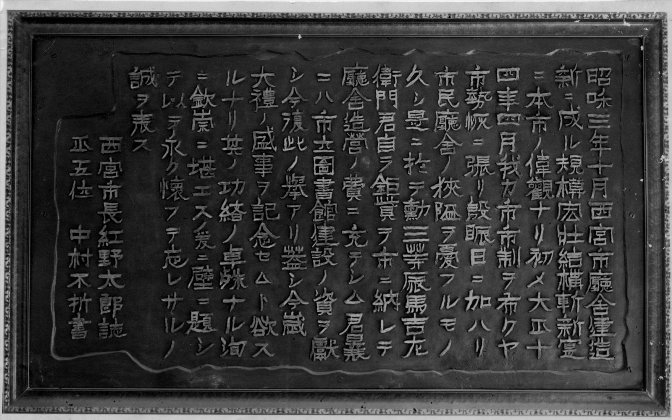 昭咊三年十月西宮市廳舍建造
新ヲ成ル規橅宏壯結構斬新寔
ニ本市ノ偉觀ナリ初メ大正十
四年四月我カ市市制ヲ布クヤ
市勢恢ニ張リ殷賑日ニ加ハリ
市民廳舍ノ狹隘ヲ憂フルモノ
久シ是ニ於テ勳三等辰馬吉左
衛門君自ラ鉅貲ヲ市ニ納レテ
廳舍造營ノ費ニ充テシム君曩
ニハ市立圖書館建設ノ資ヲ獻
シ今復此ノ擧アリ蓋シ今嵗
大禮ノ盛事ヲ記念セムト欲ス
ルナリ其ノ功緒ノ卓殊ナル洵
ニ欽崇ニ堪エス爰ニ壁ニ題シ
テ以テ永ク懷フテ忘レサルノ
誠ヲ表ス
西宮市長紅野太郎誌
正五位 中村不折書